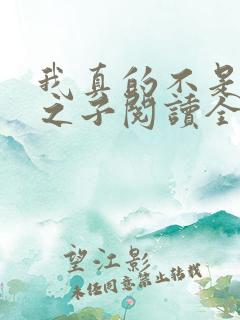 我真的不是
之子阅读全
望江影
未经同意禁止转载